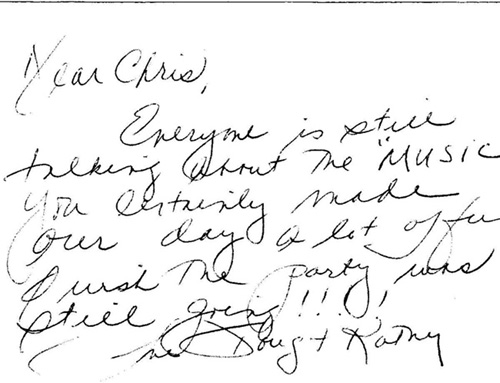 Dear Chris,
Everyone is still
talking about the "MUSIC
You certainly made
our day a lot of fu
I wish the party was
still going!!!
Doug + Kathy